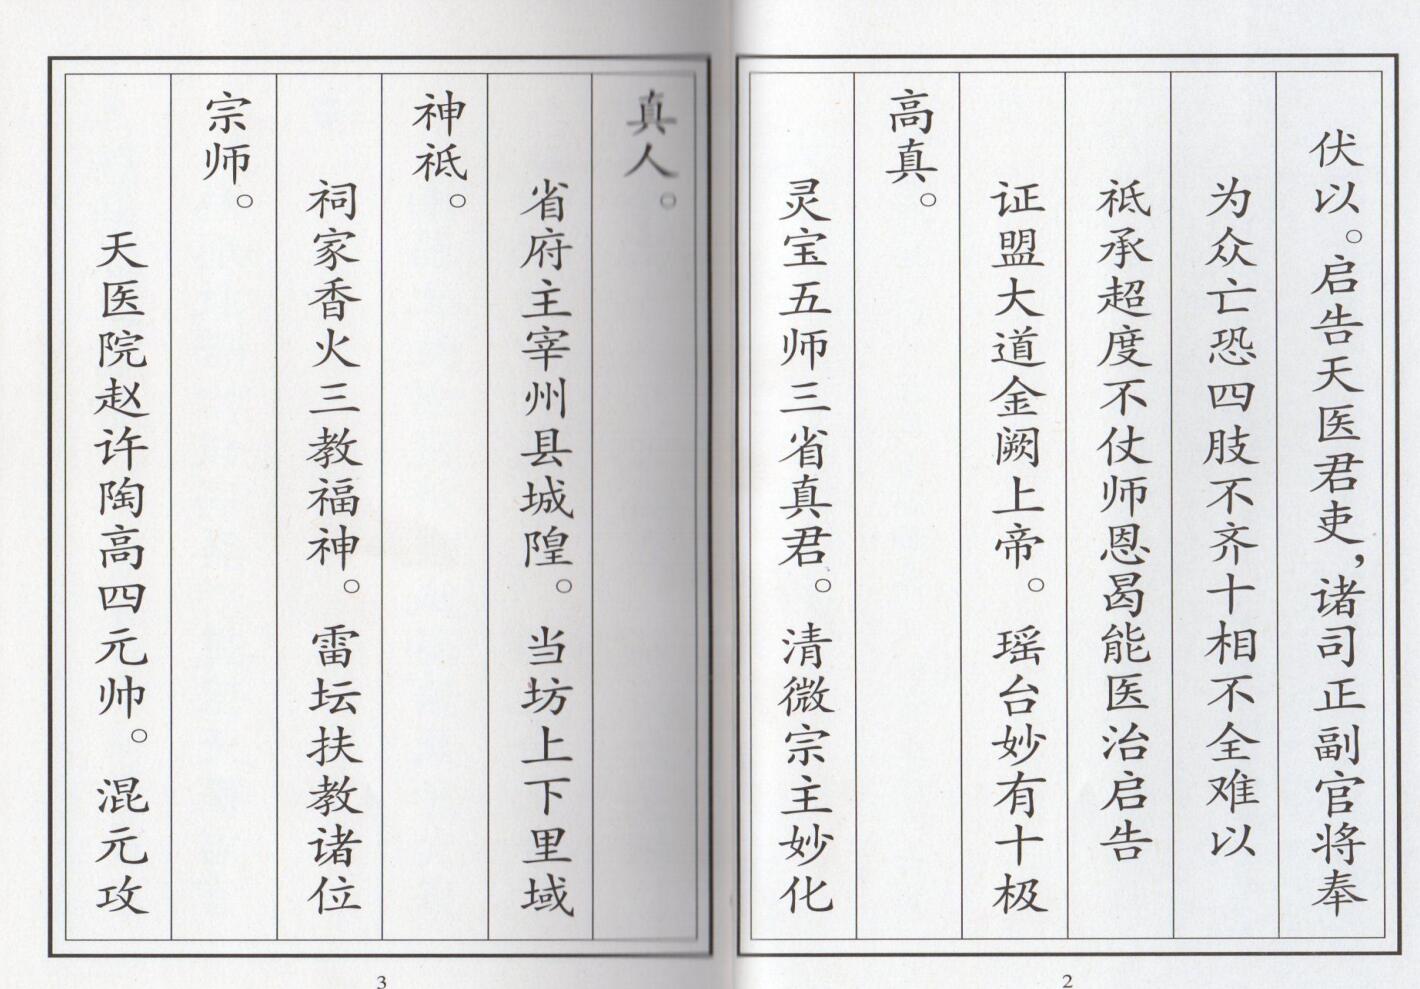 伏以。启告天医君吏，诸司正副官将奉
为众亡恐四肢不齐十相不全难以
祇承超度不仗师恩曷能医治启告
证盟大道金阙上帝。瑶台妙有十极
高真。
灵宝五师三省真君。清微宗主妙化
2
真人。
省府主宰州县城隍。当坊上下里域
神祇。
祠家香火三教福神。雷坛扶教诸位
宗师。
天医院赵许陶高四元帅。混元攻
3